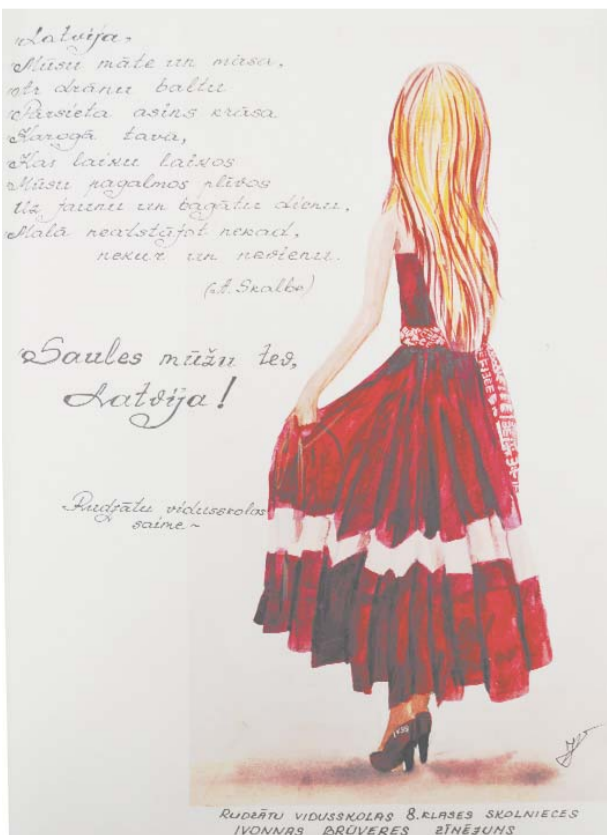 Latvija,
Mūsu māte un māsa,
Ar drānu baltu
Pārsieta asins krāsa
Karogā tavā,
Kas laiku laikos
Mūsu pagalmos plīvos
Uz jaunu un bagātu dienu,
Malā neatstājot nekad,
nekur un nevienu.
(A. Skalbe)
Saules mūžu tev,
Latvija!
Rudzātu vidusskolas
saime ~
RUDZĀTU VIDUSSKOLAS 8.KLASES SKOLNIECES
IVONNAS BRŪVERES ZĪMĒJUMS